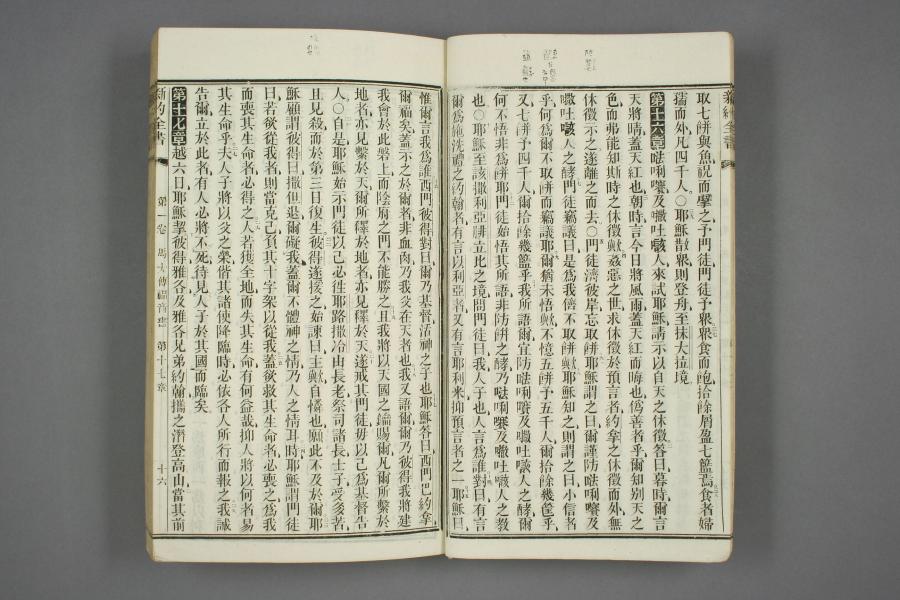 取七餅與魚祝而擘之予門徒門徒予衆衆食而飽拾餘屑盈七籃焉食者婦
孺而外凡四千人○耶穌散衆則登舟至抹大拉境
第十六章㖿唎㘔及𠾖吐㖡人來試耶穌請示以自天之休徵答曰暮時爾言
天將晴蓋天紅也朝時言今日將風雨蓋天紅而晦也僞善者乎爾知別天之
色而弗能知斯時之休徵歟姦惡之世求休徵於預言者約拿之休徵而外無
休徵示之遂離之而去○門徒濟彼岸忘取餅耶穌謂之曰爾謹防 及
人之酵門徒竊議曰是爲我儕不取餅歟耶穌知之則謂之曰小信者
乎何爲爾不取餅而竊議耶爾猶未悟歟不憶五餅予五千人爾拾餘幾筐乎
又七餅予四千人爾拾餘幾籃乎我所語爾宜防 及 人之酵爾
何不悟非爲餅耶門徒始悟其所語非防餅之酵乃 及 人之敎
也○耶穌至該撒利亞腓立比之境問門徒曰我人子也人言爲誰對曰有言
爾爲施洗禮之約翰者有言以利亞者又有言耶利米抑預言者之一耶穌曰
惟爾言我爲誰西門彼得對曰爾乃基督活神之子也耶穌答曰西門巴約拿
爾福矣蓋示之於爾者非血肉乃我父在天者也我又語爾爾乃彼得我將建
我會於此磐上而陰府之門不能勝之且我將以天國之鑰賜爾凡爾所繫於
地者亦見繫於天爾所釋於地者亦見釋於天遂戒其門徒毋以己爲基督告
人○自是耶穌始示門徒以己必往耶路撒冷由長老祭司諸長士子受多害
且見殺而於第三日復生彼得遂援之始諫曰主歟自憐也願此不及於爾耶
穌顧謂彼得曰撒但退爾礙我蓋爾不體神之情乃人之情耳時耶穌謂門徒
曰若欲從我者則當克己負其十字架以從我蓋欲救其生命者必喪之爲我
而喪其生命者必得之人若獲全地而失其生命有何益哉抑人將以何者易
其生命乎夫人子將以父之榮偕其諸使降臨時必依各人所行而報之我誠
告爾立於此者有人必將不死待見人子於其國而臨矣
第十七章越六日耶穌挈彼得雅各及雅各兄弟約翰攜之潛登高山當其前
新約全書 第一卷 馬太傳福音書 第十七章 十六
新約全書